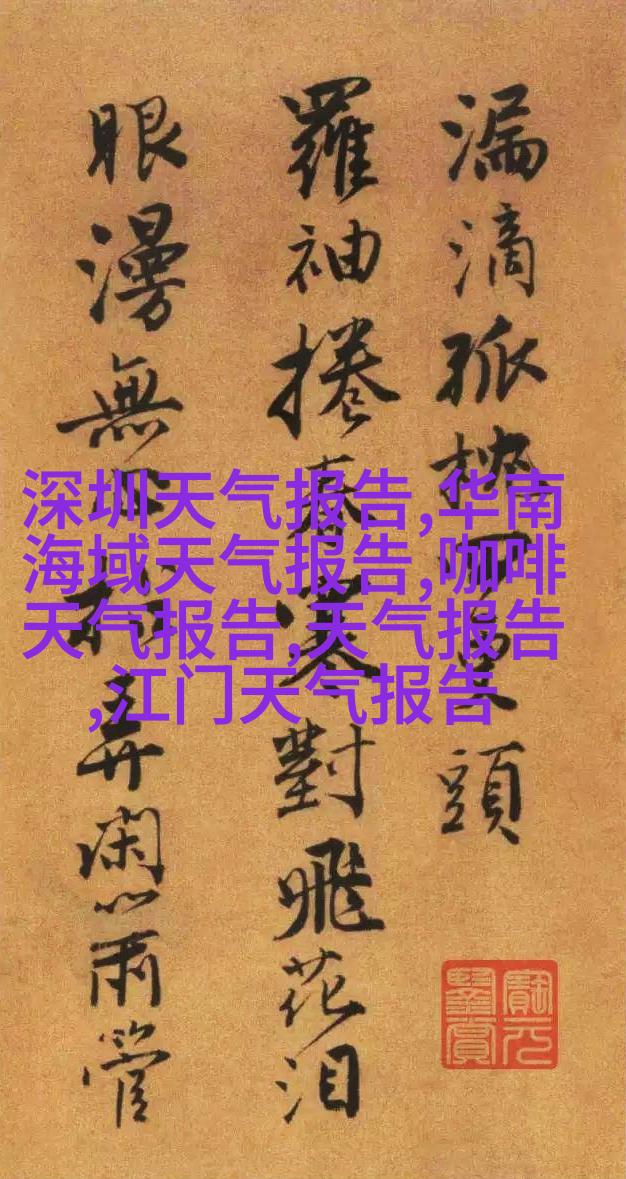 漏滴孤頭
羅袖捲春寒對飛花泪
眼漫無弄閑管
深圳天气报告,华南
海域天气报告,咖啡
天气报告,天气报告
,江门天气报告